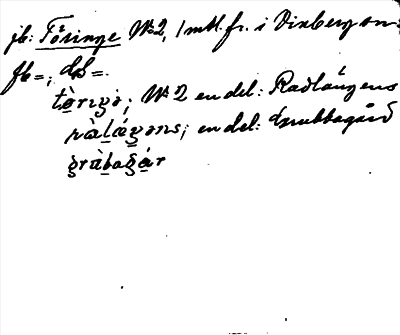 jb: Töringe No 2, 1 mtl. fr. i Vinberg sn
fb =; ds =.
tòrıŋə̀; No 2 en del: Radlängens
ràlǽŋəns; en del: Grubbagård
grùbagár